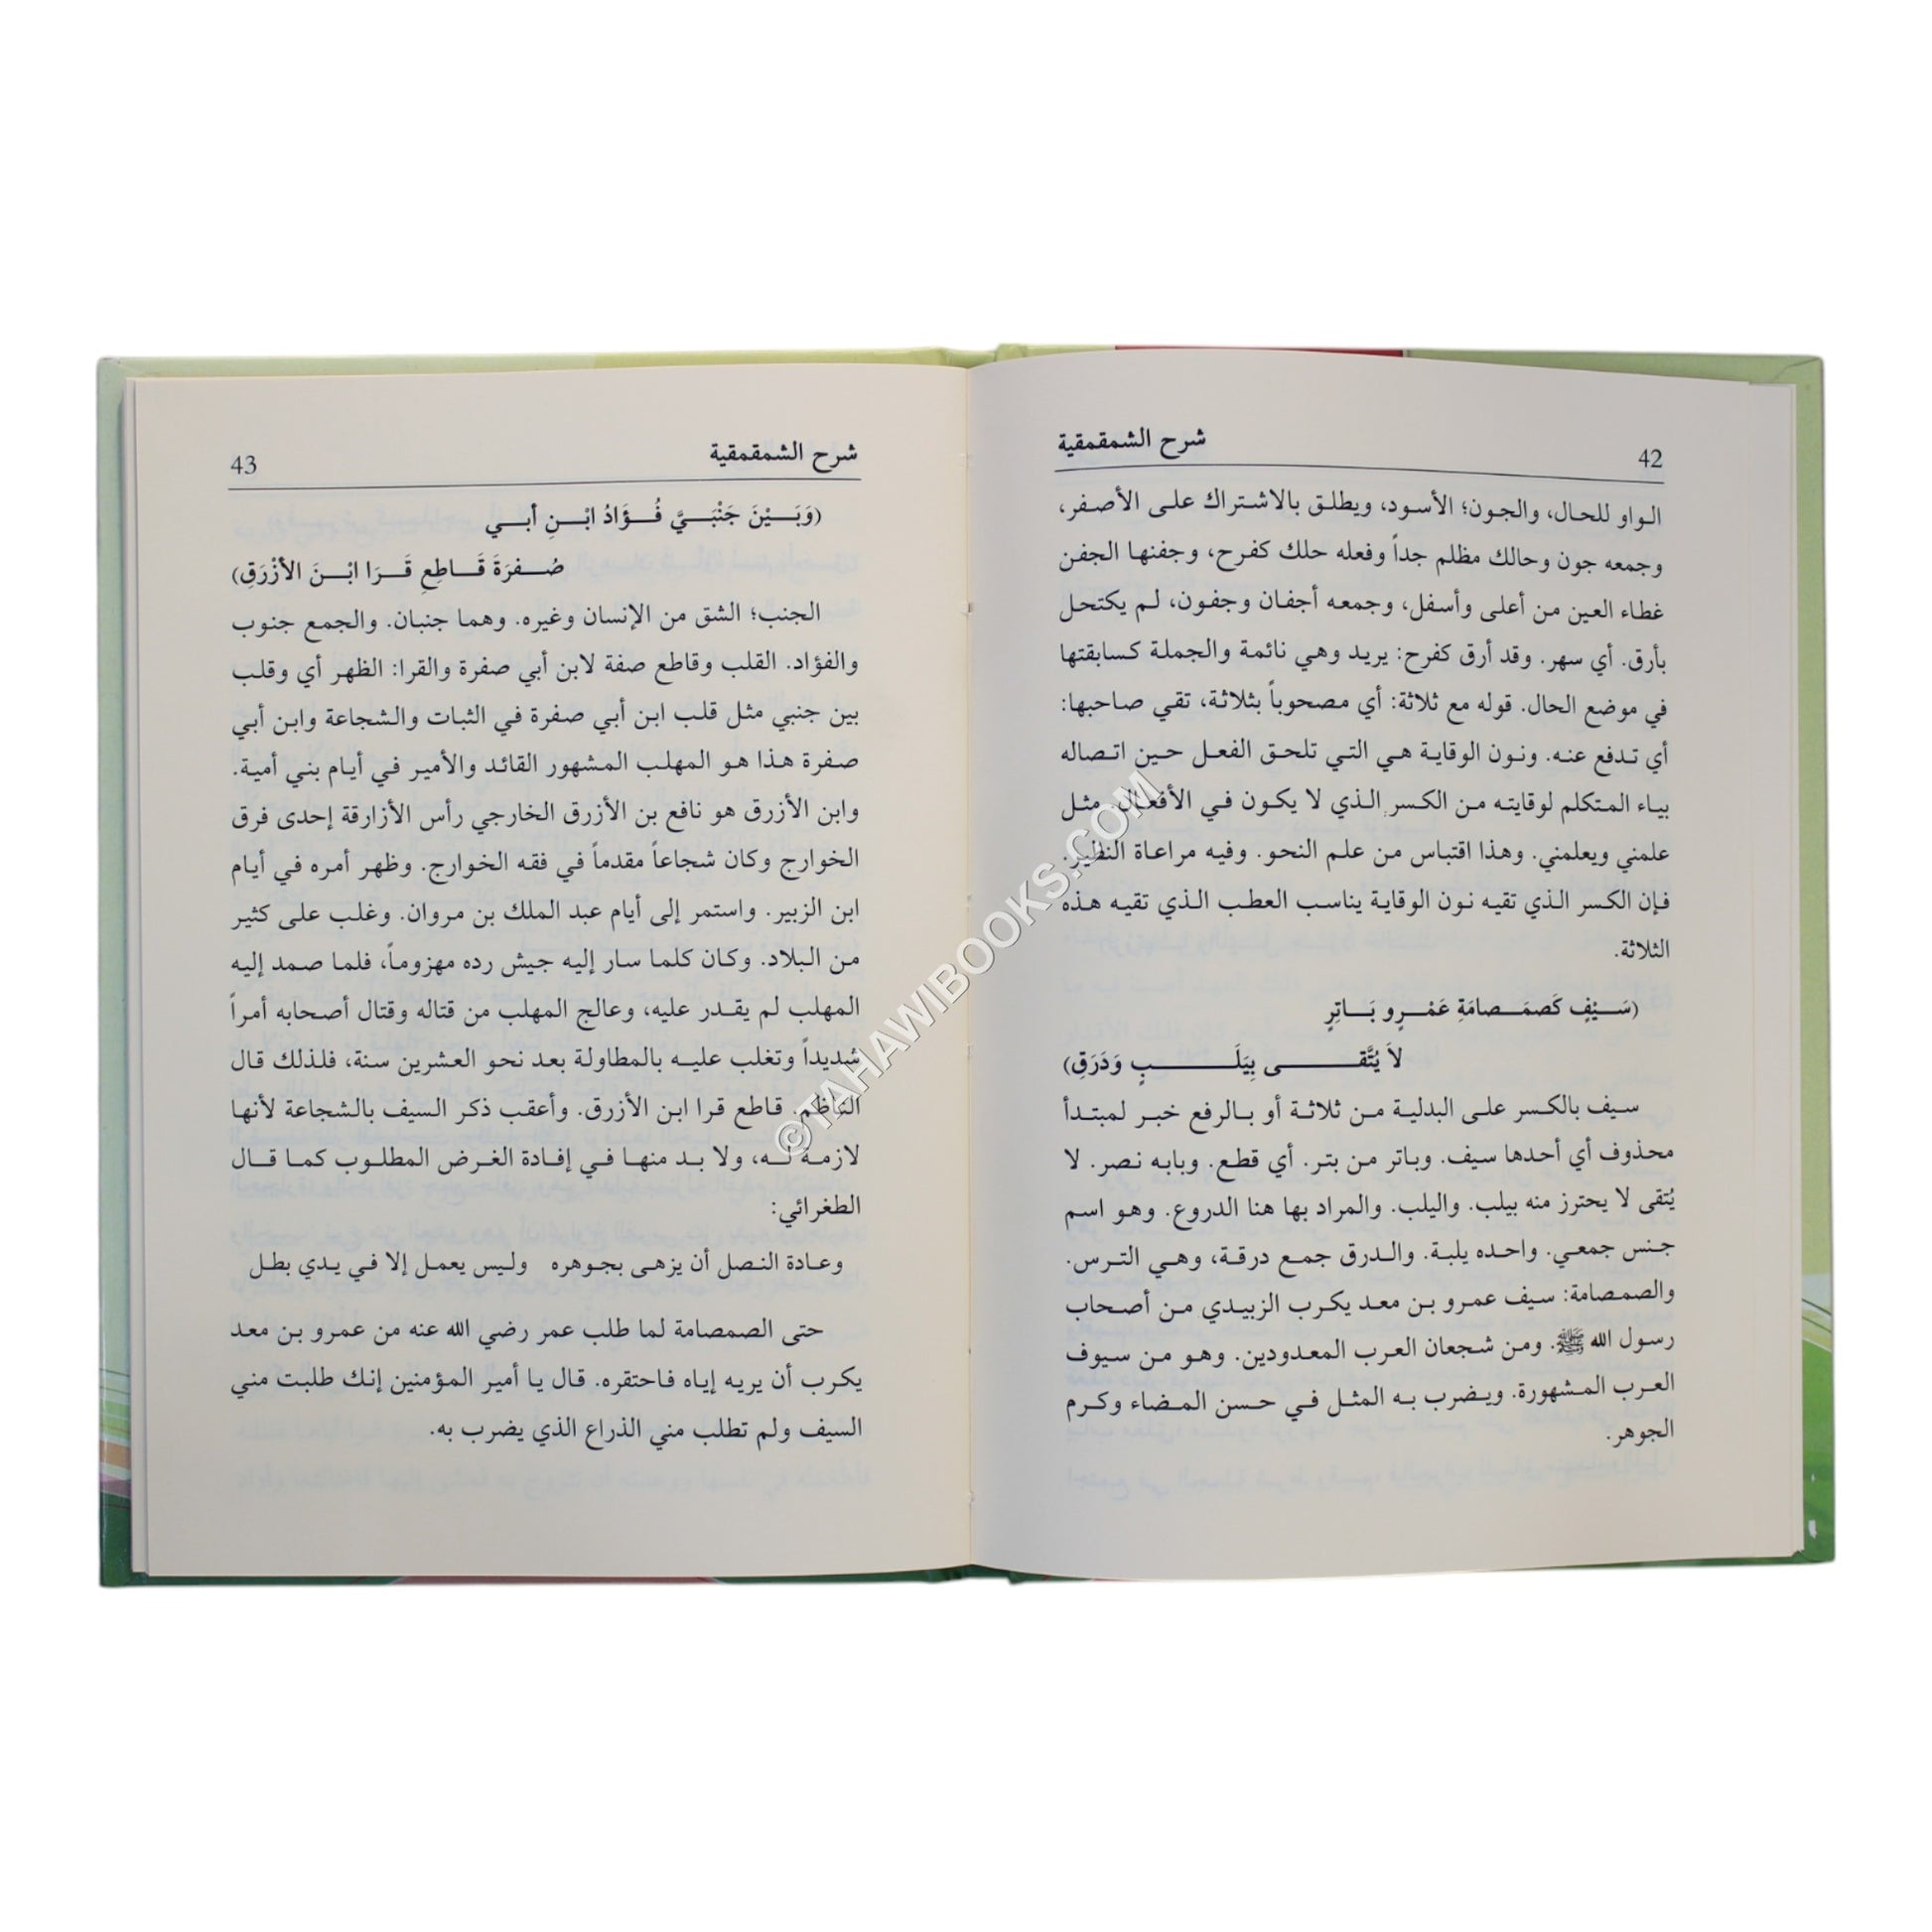 42
شرح الشمقمقية
الواو للحال، والجون؛ الأسود، ويطلق بالاشتراك على الأصفر،
وجمعه جون وحالك مظلم جداً وفعله حلك كفرح، وجفنها الجفن
غطاء العين من أعلى وأسفل، وجمعه أجفان وجفون، لم يكتحل
بأرق. أي سهر. وقد أرق كفرح: يريد وهي نائمة والجملة كسابقتها
في موضع الحال. قوله مع ثلاثة: أي مصحوباً بثلاثة، تقي صاحبها:
أي تدفع عنه. ونون الوقاية هي التي تلحق الفعل حين اتصاله
بياء المتكلم لوقايته من الكسر الذي لا يكون في الأفعال. مثل
علمني ويعلمني. وهذا اقتباس من علم النحو. وفيه مراعاة النظير.
فإن الكسر الذي تقيه نون الوقاية يناسب العطب الذي تقيه هذه
الثلاثة.
(سَيْفٍ كَصَمَصامَةِ عَمْرٍو بَاتِرٍ
لاَ يُتَّقى بِيَلَبٍ وَدَرَقِ)
سيف بالكسر على البدلية من ثلاثة أو بالرفع خبر لمبتدأ
محذوف أي أحدها سيف. وباتر من بتر. أي قطع. وبابه نصر. لا
يُتقى لا يحترز منه بيلب. واليلب. والمراد بها هنا الدروع. وهو اسم
جنس جمعي. واحده يلبة. والدرق جمع درقة، وهي الترس.
والصمصامة: سيف عمرو بن معد يكرب الزبيدي من أصحاب
رسول الله ﷺ. ومن شجعان العرب المعدودين. وهو من سيوف
العرب المشهورة. ويضرب به المثل في حسن المضاء وكرم
الجوهر.
شرح الشمقمقية
43
(وَبَيْنَ جَنْبَيَّ فُؤَادُ ابْنِ أبي
صُفرَةَ قَاطِعِ قَرَا ابْنَ الأزْرَقِ)
الجنب؛ الشق من الإنسان وغيره. وهما جنبان. والجمع جنوب
والفؤاد. القلب وقاطع صفة لابن أبي صفرة والقرا: الظهر أي وقلب
بين جنبي مثل قلب ابن أبي صفرة في الثبات والشجاعة وابن أبي
صفرة هذا هو المهلب المشهور القائد والأمير في أيام بني أمية.
وابن الأزرق هو نافع بن الأزرق الخارجي رأس الأزارقة إحدى فرق
الخوارج وكان شجاعاً مقدماً في فقه الخوارج. وظهر أمره في أيام
ابن الزبير. واستمر إلى أيام عبد الملك بن مروان. وغلب على كثير
من البلاد. وكان كلما سار إليه جيش رده مهزوماً، فلما صمد إليه
المهلب لم يقدر عليه، وعالج المهلب من قتاله وقتال أصحابه أمراً
شديداً وتغلب عليه بالمطاولة بعد نحو العشرين سنة، فلذلك قال
الناظم. قاطع قرا ابن الأزرق. وأعقب ذكر السيف بالشجاعة لأنها
لازمة له، ولا بد منها في إفادة الغرض المطلوب كما قال
الطغرائي:
وعادة النصل أن يزهى بجوهره وليس يعمل إلا في يدي بطل
حتى الصمصامة لما طلب عمر رضي الله عنه من عمرو بن معد
يكرب أن يريه إياه فاحتقره. قال يا أمير المؤمنين إنك طلبت مني
السيف ولم تطلب مني الذراع الذي يضرب به.
©TAHAWIBOOKS.COM